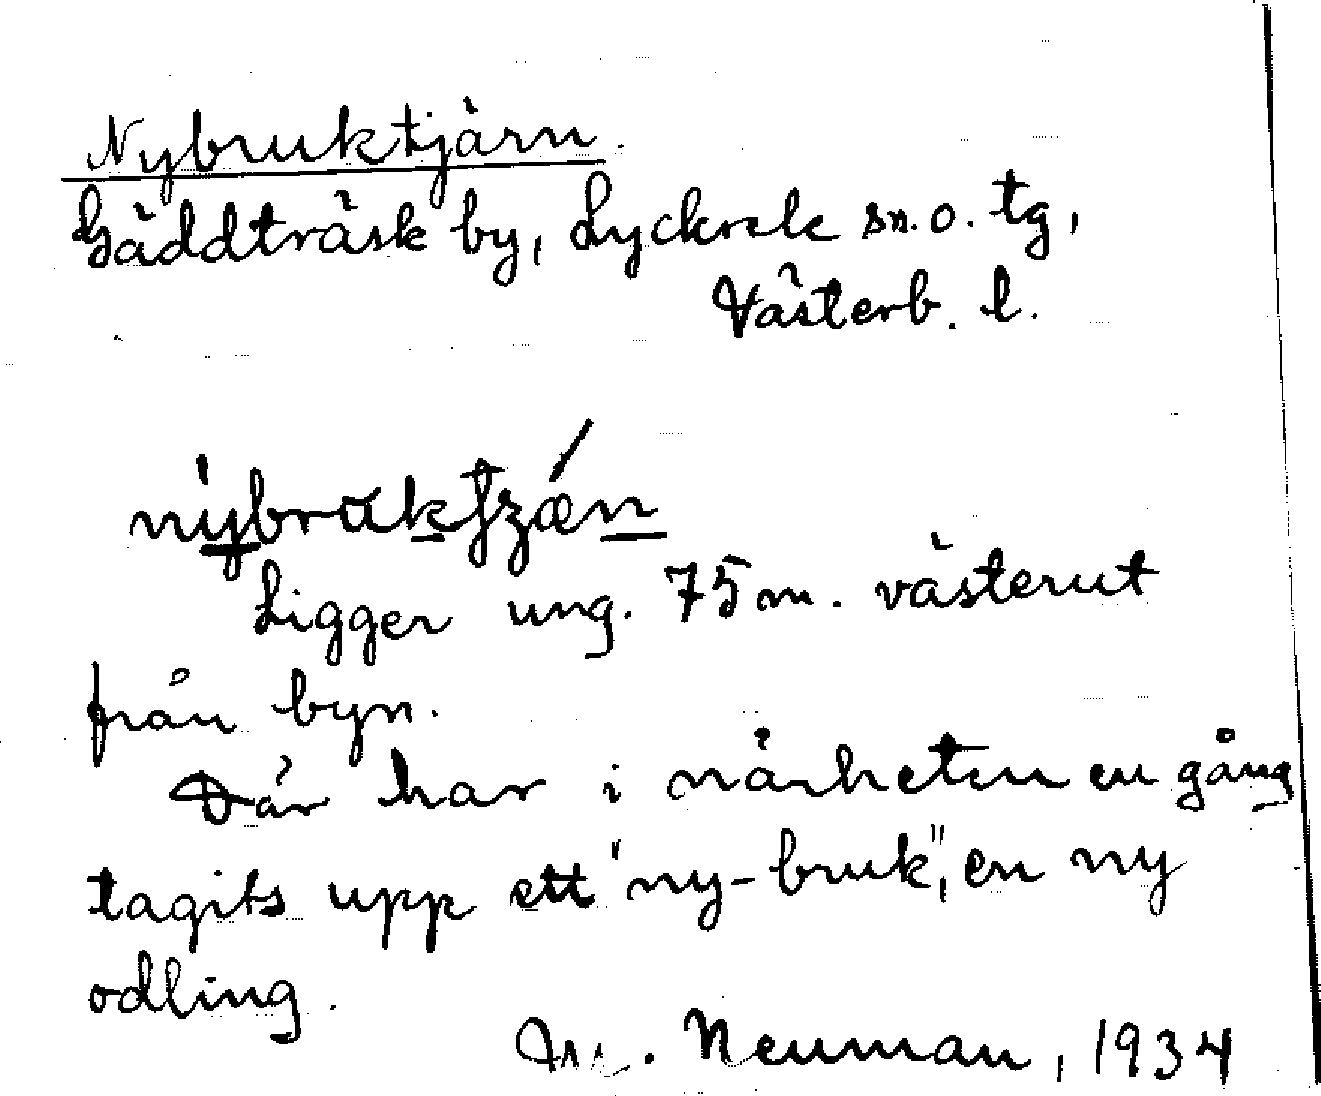 Nybruktjärn.
Gäddträsk by, Lycksele sn. o. tg,
Västerb. l.
nybruktʒǽn
Ligger ung. 75 m. västerut
från byn.
Där har i närheten en gång
tagits upp ett "ny-bruk", en ny
odling.
Neuman, 1934